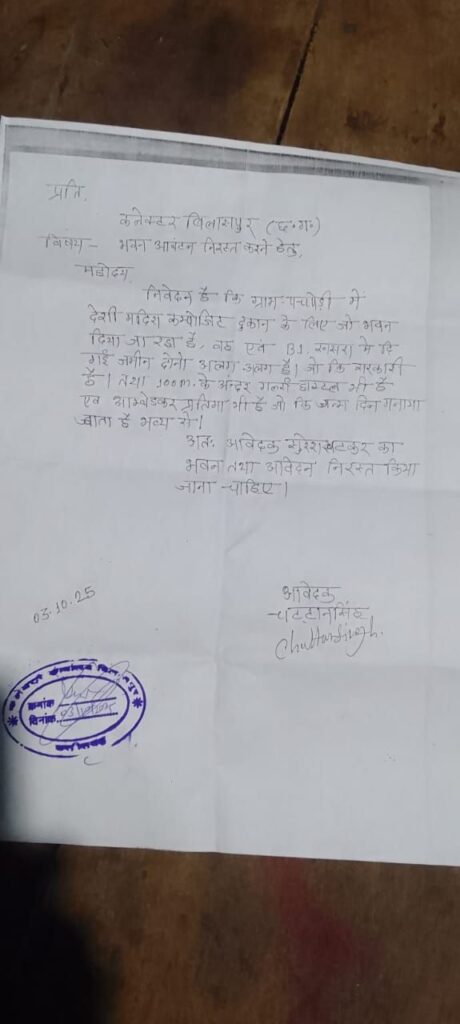 प्रति,
कलेक्टर बिलासपुर (छ.ग.)
विषय - भवन आबंटन निरस्त करने हेतु,
महोदय,
निवेदन है कि ग्राम पचपेड़ी में
देशी मदिरा कम्पोजिट दुकान के लिए जो भवन
दिया जा रहा है, वह एवं B1, खसरा में दि
गई जमीन दोनो अलग अलग है। जो कि सरकारी
है। तथा 100m. के अन्दर गर्ल्स हॉस्टल भी है
एवं आम्बेडकर प्रतिमा भी है जो कि जन्म दिन मनाया
जाता है भव्य से।
अतः आवेदक सुरेश खटकर का
भवन तथा आवेदन निरस्त किया
जाना चाहिए।
03.10.25
आवेदक
चट्टानसिंह
Chattansingh.
क्रमांक
दिनांक